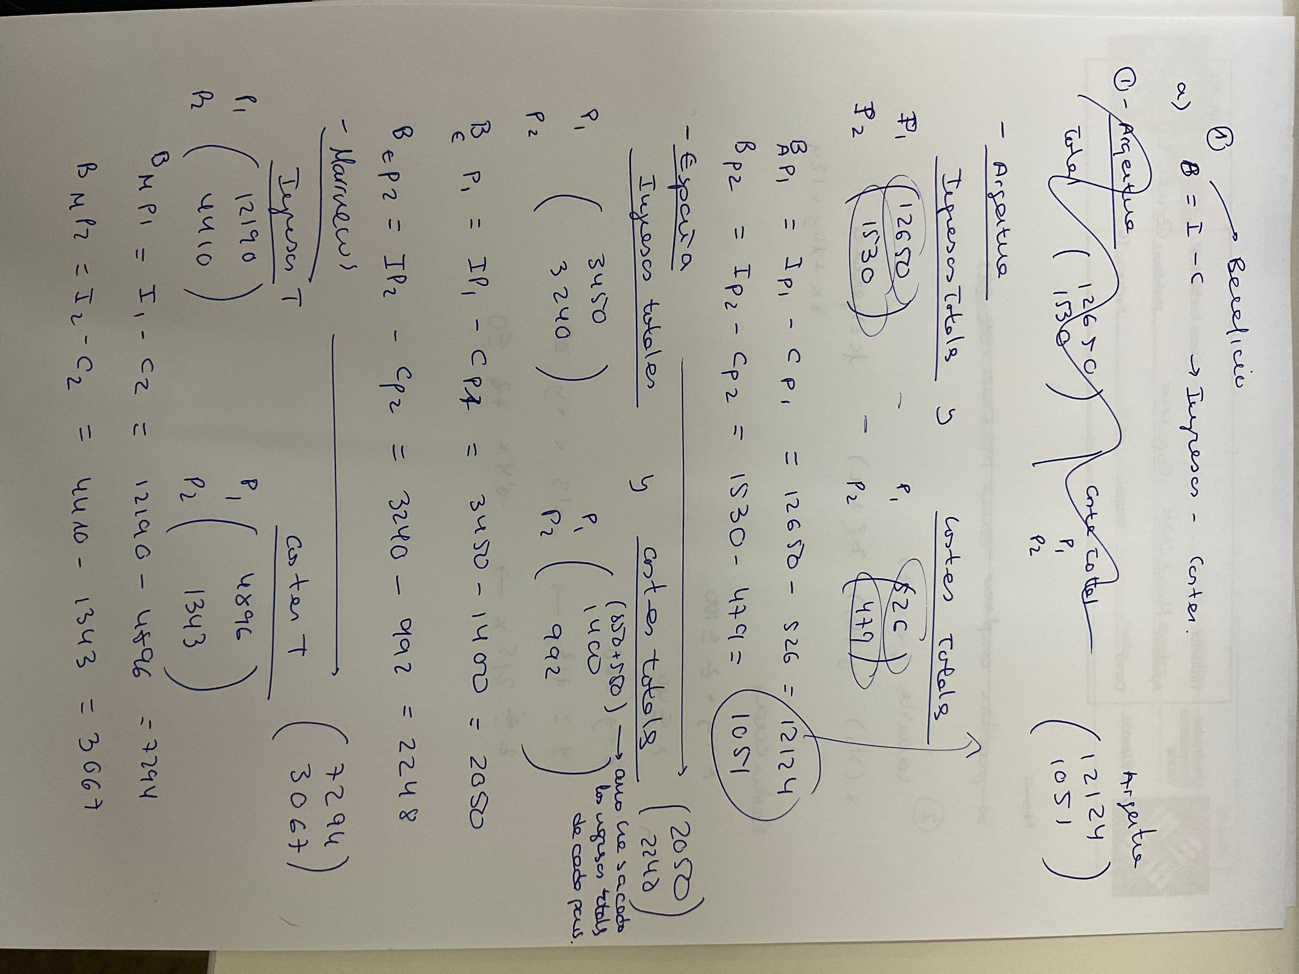 ① → Beneficio
a) B = I - C → Ingresos - Costes.
①- Argentina
Total ( 12650 ) Coste total
( 1530 ) P1
P2
Argentina
( 12124 )
( 1051 )
- Argentina
Ingresos Totals y Costes Totals
P1 ( 12650 ) - P1 ( 526 )
P2 ( 1530 ) - P2 ( 479 )
BAP1 = IP1 - CP1 = 12650 - 526 = 12124
BP2 = IP2 - CP2 = 1530 - 479 = 1051
- España
Ingresos totales y costes totals ( 2050 )
( 2248 )
(850+550) → como he sacado los ingresos totals de cada pais.
P1 ( 3450 ) P1 ( 1400 )
P2 ( 3240 ) P2 ( 992 )
BE P1 = IP1 - CP1 = 3450 - 1400 = 2050
BEP2 = IP2 - CP2 = 3240 - 992 = 2248
- Marruecos
Ingresos T Costes T ( 7294 )
( 3067 )
P1 ( 12190 ) P1 ( 4896 )
P2 ( 4410 ) P2 ( 1343 )
BMP1 = I1 - C2 = 12190 - 4896 = 7294
BMP2 = I2 - C2 = 4410 - 1343 = 3067